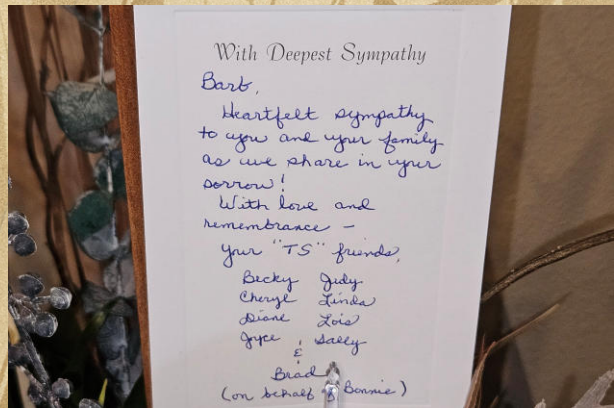 With Deepest Sympathy
Barb,
Heartfelt sympathy
to you and your family
as we share in your
sorrow!
With love and
remembrance –
your "TS" friends,
Becky Judy
Cheryl Linda
Diane Lois
Joyce Sally
&
Brad
(on behalf of Bonnie)